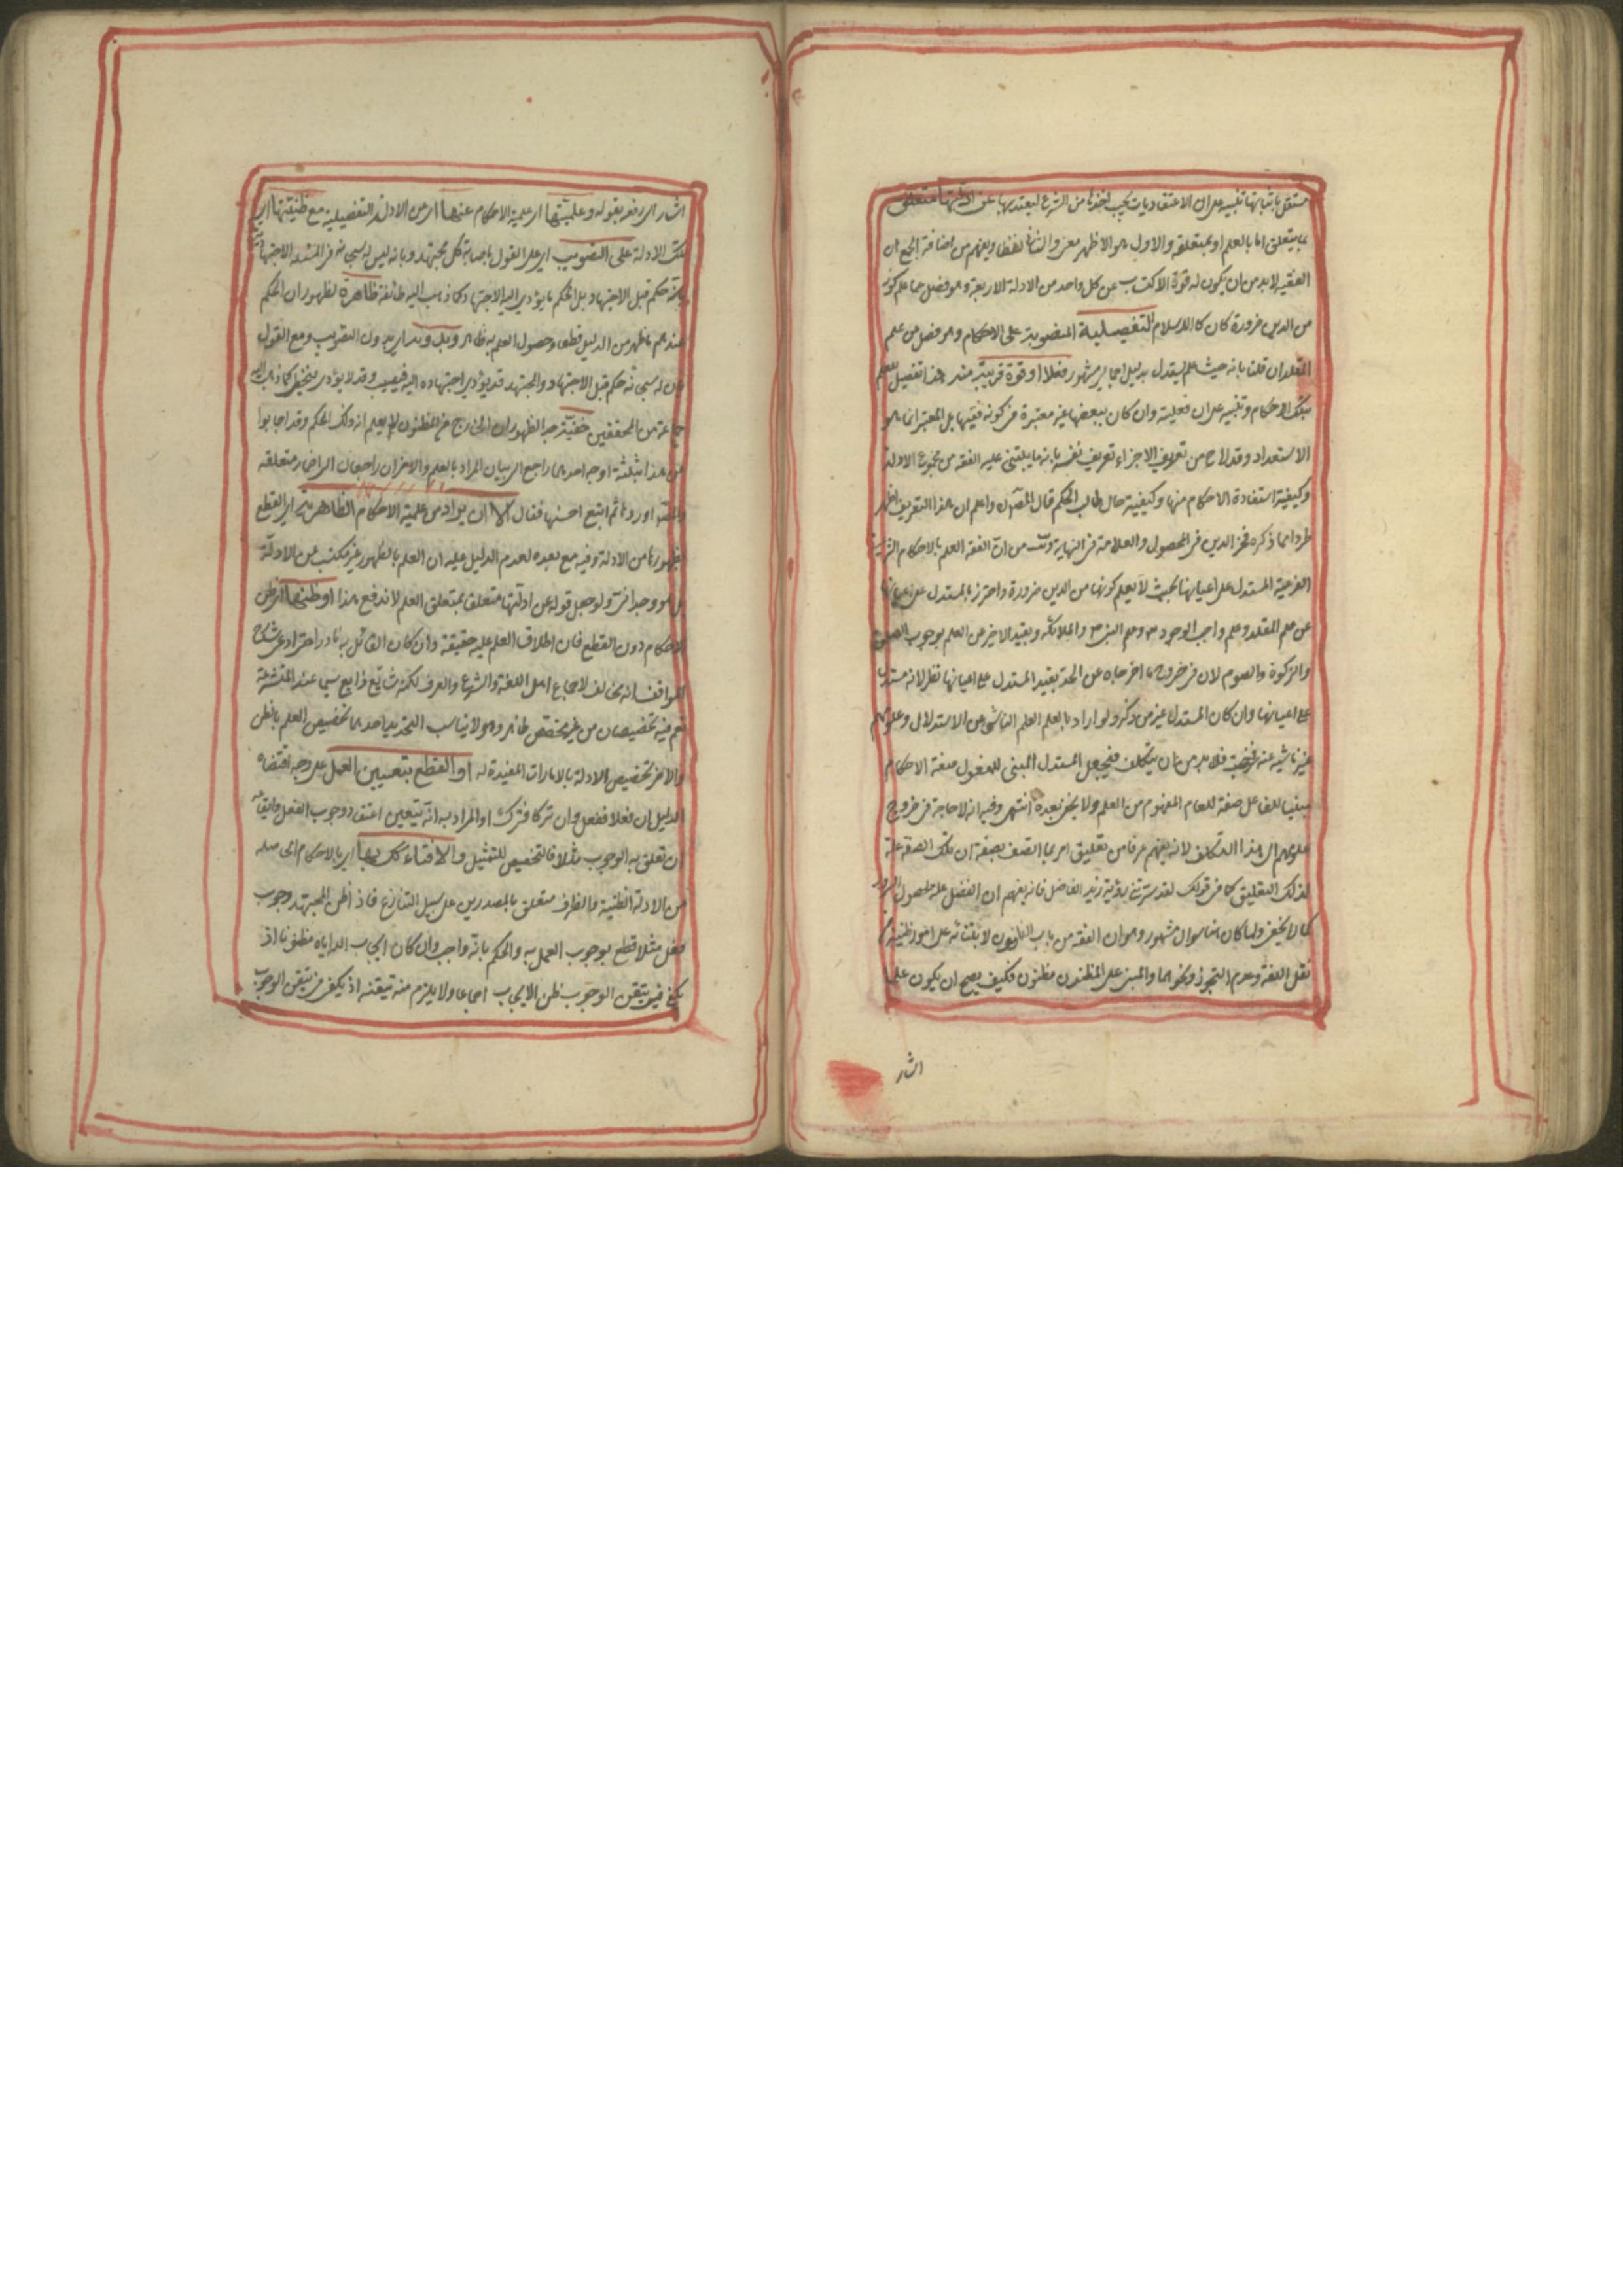 مستقل باثباتها تنبيه على ان الاعتقاديات يجب اخذها من الشرع ليعتد بها عن ادلتها متعلق
بما يتعلق اما بالعلم او بمتعلقه والاول هو الاظهر معنى والثانى لفظا ويفهم من اضافة الجمع ان
الفقيه لابد من ان يكون له قوة الاكتساب عن كل واحد من الادلة الاربعة وهو فصل عما علم كونه
من الدين ضرورة كان كالاسلام التفصيلية المنصوبة على الاحكام وهو فصل عن علم
المقلد ان قلنا بانه حيث علم يستدل بدليل اجمالى مشهور فعلا او قوة قريبة منه هذا تفصيل للعلم
بتلك الاحكام وتنبيه على ان فعليته وان كان ببعضها غير معتبرة فى كونه فقيها بل المعتبر انما هو
الاستعداد وقد لاح من تعريف الاجزاء تعريف نفسه بانه ما يبتنى عليه الفقه من مجموع الادلة
وكيفية استفادة الاحكام منها وكيفية حال طالب الحكم قال المص واعلم ان هذا التعريف اظهر
طردا مما ذكره فخر الدين فى المحصول والعلامة فى النهاية من ان الفقه العلم بالاحكام الشرعية
الفرعية المستدل على اعيانها بحيث لا يعلم كونها من الدين ضرورة واحترز بالمستدل على اعيانها
عن علم المقلد وعلم واجب الوجود وعلم النبى والملائكة وبقيد الاخير عن العلم بوجوب الصلوة
والزكوة والصوم لان فى خروج ما اخرجاه عن الحد بقيد المستدل على اعيانها نظر لانه مستدل
على اعيانها وان كان المستدل غير من ذكر ولو اراد بالعلم العلم الناشى عن الاستدلال وعلومهم
غير ناشية عنه فلابد من ان يتكلف فيجعل المستدل المبنى للمفعول صفة الاحكام
مبنيا للفاعل صفة للعالم المفهوم من العلم ولا يخفى بعده انتهى وفيه انه لا حاجة فى خروج
علومهم الى هذا التكلف لانه يفهم عرفا من تعليق امر بما اتصف بصفة ان تلك الصفة علة
لذلك التعليق كما فى قولك لقد سرتنى رؤية زيد الفاضل فانه يفهم ان الفضل علة لحصول السرور
كما لا يخفى ولما كان هنا سوال مشهور وهو ان الفقه من باب الظنون لابتنائه على امور ظنية
نقل اللغة وعدم التجوز ونحوهما والمبنى على المظنون مظنون فكيف يصح ان يكون علما
اشار
اشار الى دفعه بقوله وعلميتها اى علمية الاحكام عنها اى عن الادلة التفصيلية مع ظنيتها اى
تلك الادلة على التصويب اى على القول باصابة كل مجتهد وبانه ليس لله سبحانه فى المسئلة الاجتهادية
حكم قبل الاجتهاد بل الحكم ما يؤدى اليه الاجتهاد كما ذهب اليه طائفة ظاهرة لظهور ان الحكم
عندهم ما ظهر من الدليل قطعا وحصول العلم به ظاهر وبدونه اى بدون التصويب ومع القول
بان لله سبحانه حكم قبل الاجتهاد والمجتهد قد يؤدى اجتهاده اليه فيصيب وقد لا يؤدى فيخطى كما ذهب اليه
جماعة من المحققين خفية لعدم الظهور ان الخارج عن المظنون لا يعلم انه ذلك الحكم وقد اجابوا
عن هذا بثلثة اوجه احدها راجع الى بيان المراد بالعلم والاخران راجعان الى متعلقه
والمص اوردها ثم اتبع احسنها فقال الا ان يراد من علمية الاحكام الظاهرية اى القطع
بظهورها من الادلة وفيه مع بعده لعدم الدليل عليه ان العلم بالظهور غير مكتسب عن الادلة
بل هو وجدانى ولو جعل قوله عن ادلتها متعلق بمتعلق العلم لاندفع هذا او ظنها اى ظن
الاحكام دون القطع فان اطلاق العلم عليه حقيقة وان كان القائل به نادرا
المواقف انه مخالف لاجماع اهل اللغة والشرع والعرف لكنه شائع ذايع سيما عند المتشرعة
نعم فيه تخصيصان من غير مخصص ظاهر وهو لا يناسب التحديد احدهما تخصيص العلم بالظن
والاخر تخصيص الادلة بالامارات المفيدة له او القطع بتعيين العمل على وجه اقتضاه
الدليل ان فعلا ففعل وان تركا فترك او المراد به انه يتعين اعتقاد وجوب الفعل
ان تعلق به الوجوب مثلا فالتخصيص للتمثيل والافتاء كك بها اى بالاحكام الحاصلة
من الادلة الظنية فالظرف متعلق بالمصدرين على سبيل التنازع فاذا ظن المجتهد وجوب
فعل مثلا قطع بوجوب العمل به والحكم بانه واجب وان كان ايجاب الله اياه مظنونا اذ
يكفى فى تيقن الوجوب ظن الايجاب اجماعا ولا يلزم منه تيقنه اذ يكفى فى تيقن الوجوب